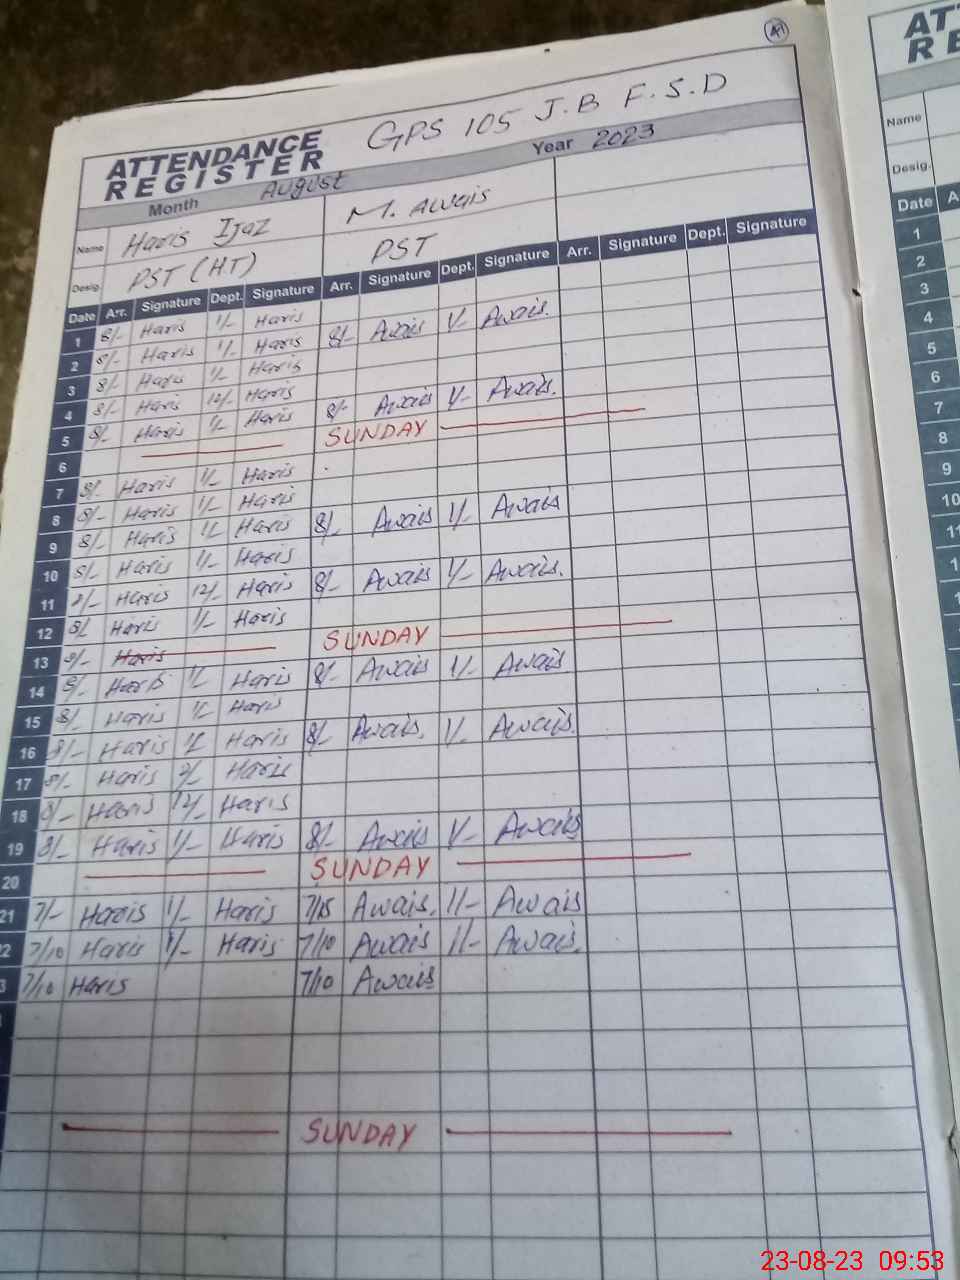 41
GPS 105 J.B F.S.D
ATTENDANCE REGISTER
Month August Year 2023
Name Haris Ijaz M. Awais
Desig. PST (H.T) PST
Date Arr. Signature Dept. Signature Arr. Signature Dept. Signature Arr. Signature Dept. Signature
1 8/- Haris 1/- Haris
2 8/- Haris 1/- Haris 8/- Awais 1/- Awais.
3 8/- Haris 1/- Haris
4 8/- Haris 12/- Haris
5 8/- Haris 1/- Haris 8/- Awais 1/- Awais.
6 SUNDAY
7 8/- Haris 1/- Haris
8 8/- Haris 1/- Haris
9 8/- Haris 1/- Haris 8/- Awais 1/- Awais
10 8/- Haris 1/- Haris
11 8/- Haris 12/- Haris 8/- Awais 1/- Awais.
12 8/- Haris 1/- Haris
13 8/- Haris SUNDAY
14 8/- Haris 1/- Haris 8/- Awais 1/- Awais
15 8/- Haris 1/- Haris
16 8/- Haris 1/- Haris 8/- Awais. 1/- Awais.
17 8/- Haris 2/- Haris
18 8/- Haris 12/- Haris
19 8/- Haris 1/- Haris 8/- Awais 1/- Awais
20 SUNDAY
21 7/- Haris 1/- Haris 7/15 Awais. 1/- Awais
2 7/10 Haris 1/- Haris 7/10 Awais 1/- Awais.
3 7/10 Haris 7/10 Awais
SUNDAY
AT
RE
Name
Desig.
Date A
1
2
3
4
5
6
7
8
9
10
11
1
1
23-08-23 09:53